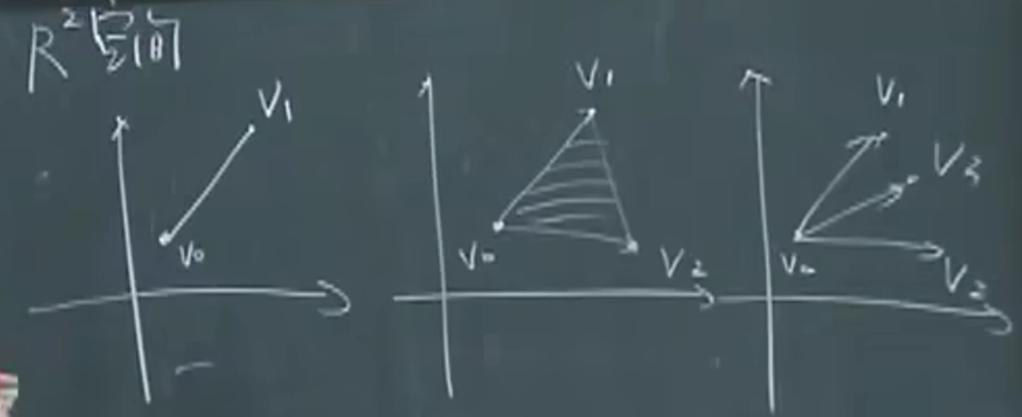 R²空间
V₁
V₀
V₁
V₀
V₂
V₁
V₂
V₀
V₃